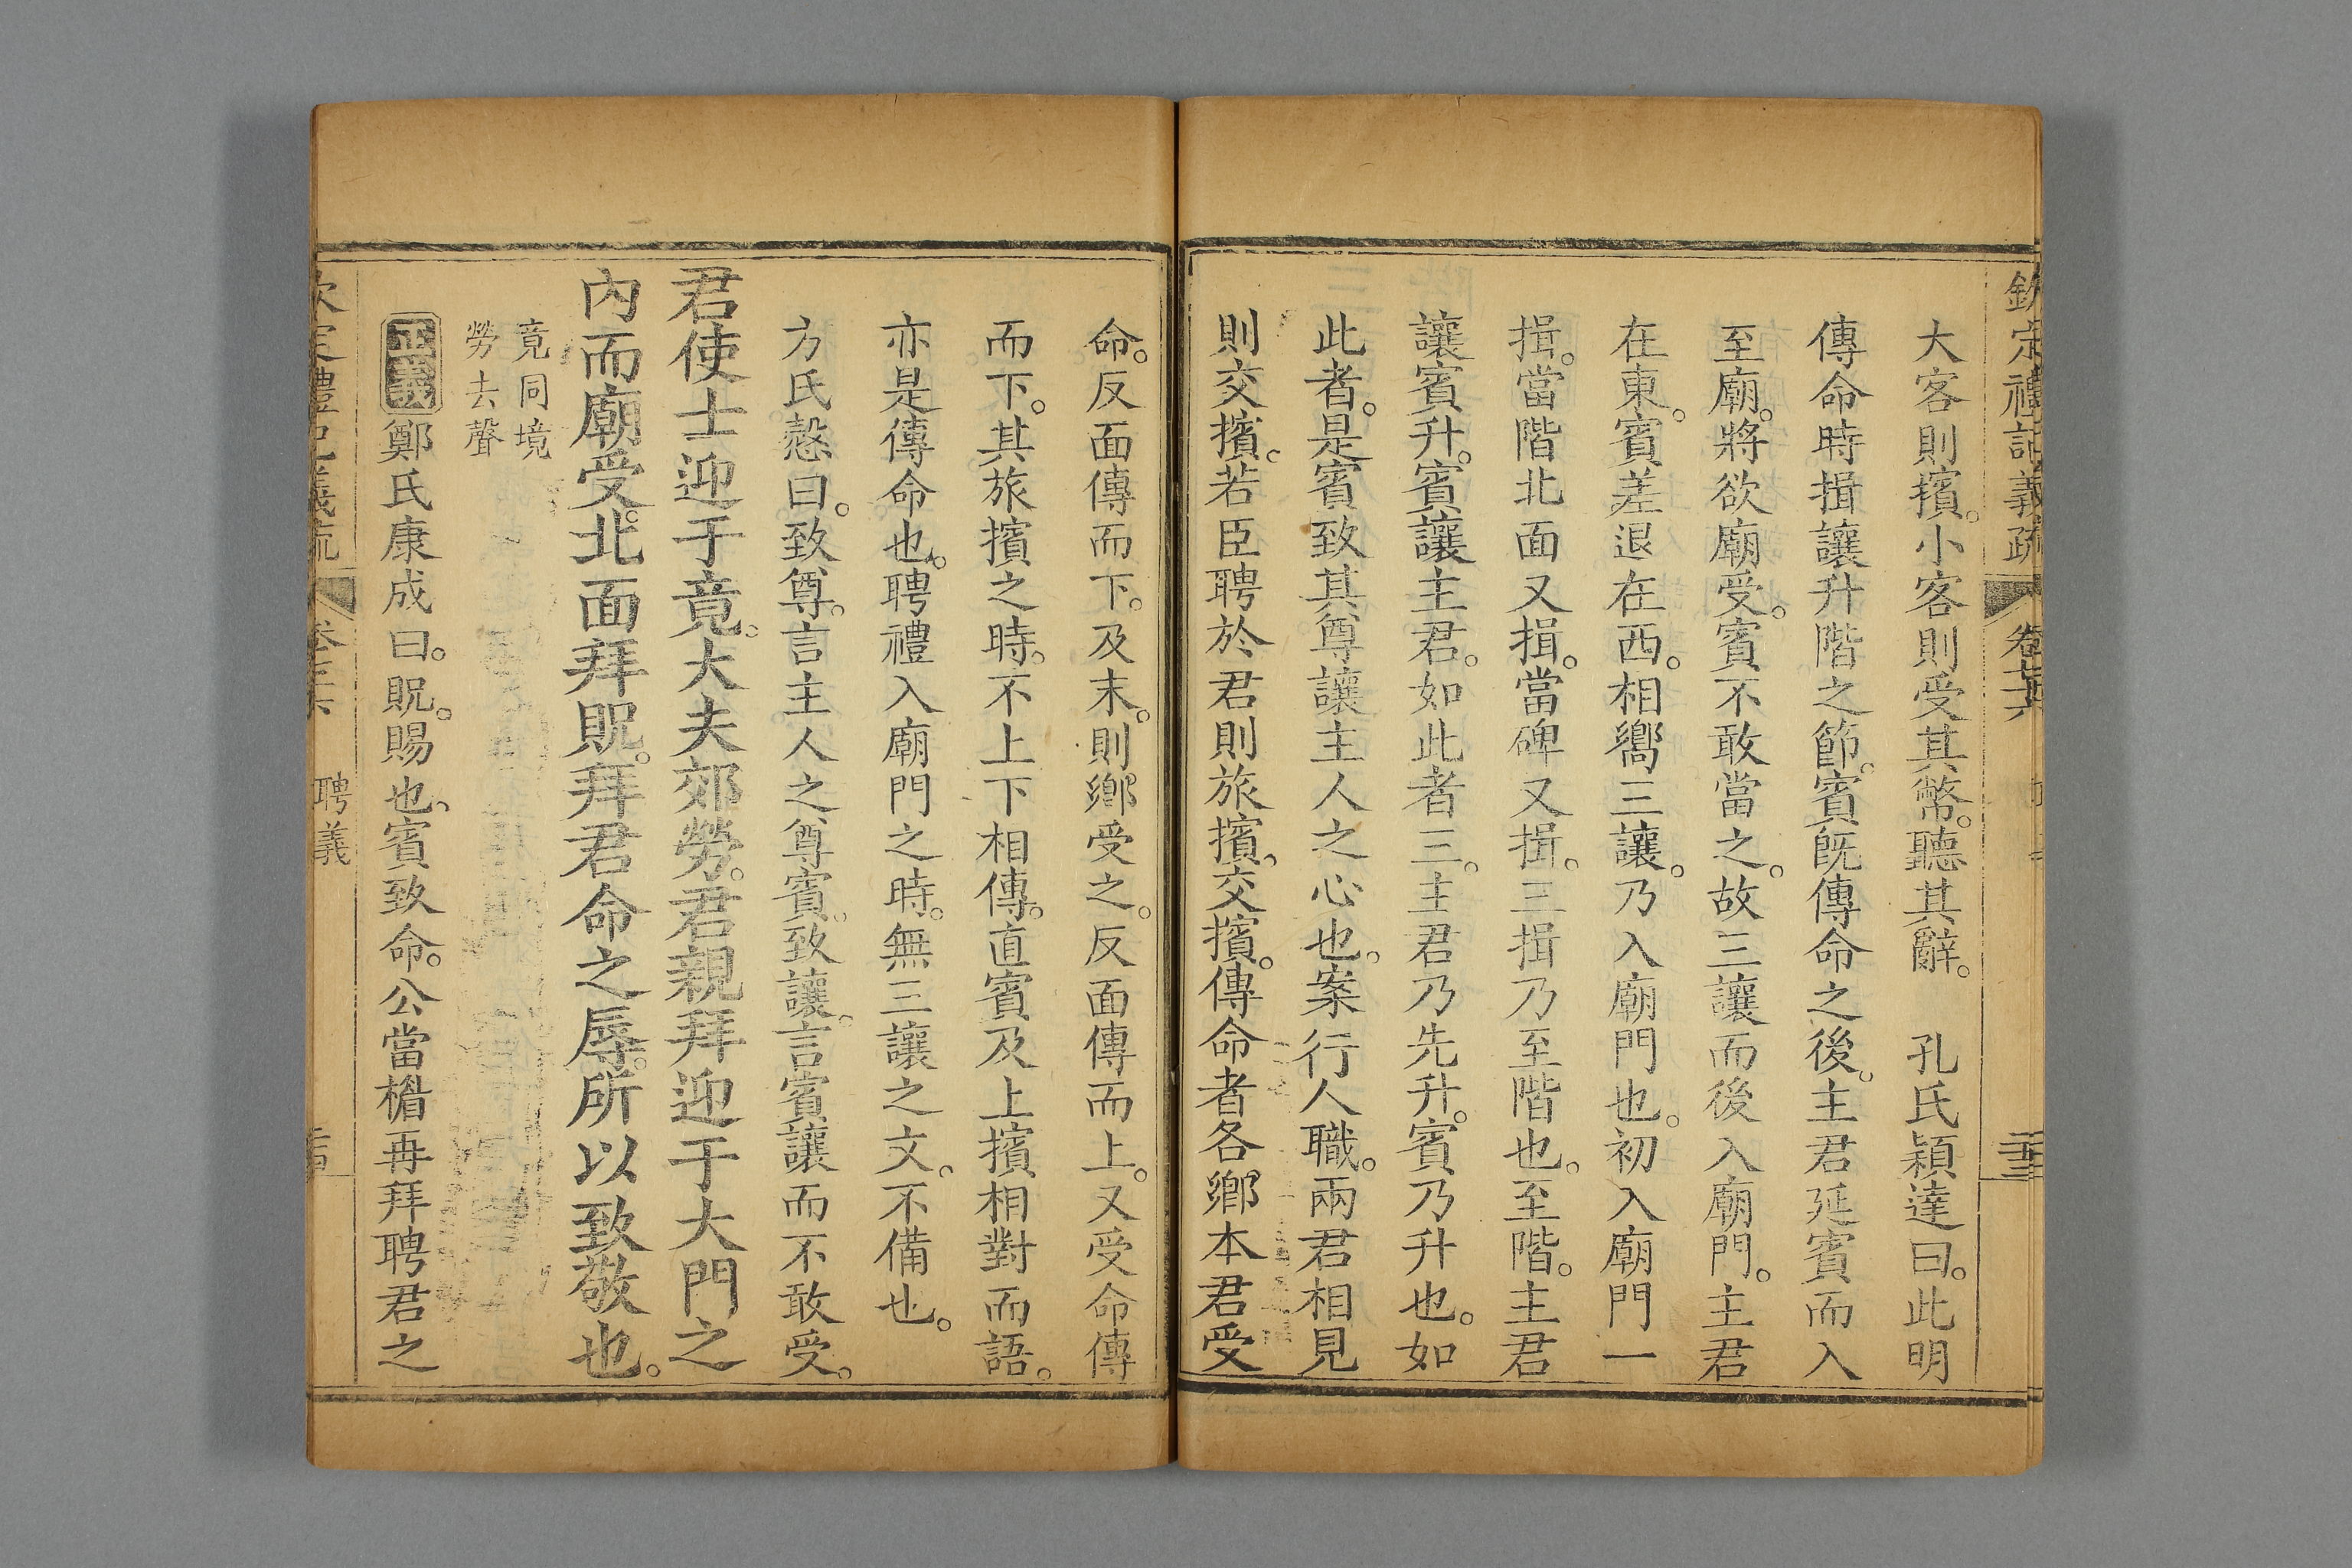 欽定禮記義疏 卷七十六
大客則擯。小客則受其幣。聽其辭。 孔氏穎達曰。此明
傳命時揖讓升階之節。賓旣傳命之後。主君延賓而入
至廟。將欲廟受。賓不敢當之。故三讓而後入廟門。主君
在東。賓差退在西。相嚮三讓。乃入廟門也。初入廟門一
揖。當階北面又揖。當碑又揖。三揖乃至階也。至階。主君
讓賓升。賓讓主君。如此者三。主君乃先升。賓乃升也。如
此者。是賓致其尊讓主人之心也。案行人職。兩君相見
則交擯。若臣聘於君則旅擯。交擯。傳命者各鄉本君受
命。反面傳而下。及末。則鄉受之。反面傳而上。又受命傳
而下。其旅擯之時。不上下相傳。直賓及上擯相對而語。
亦是傳命也。聘禮入廟門之時。無三讓之文。不備也。
方氏慤曰。致尊。言主人之尊賓。致讓。言賓讓而不敢受。
君使士迎于竟。大夫郊勞。君親拜迎于大門之
內而廟受。北面拜貺。拜君命之辱。所以致敬也。
竟同境
勞去聲
正義 鄭氏康成曰。貺。賜也。賓致命。公當楣再拜聘君之
欽定禮記義疏 聘義